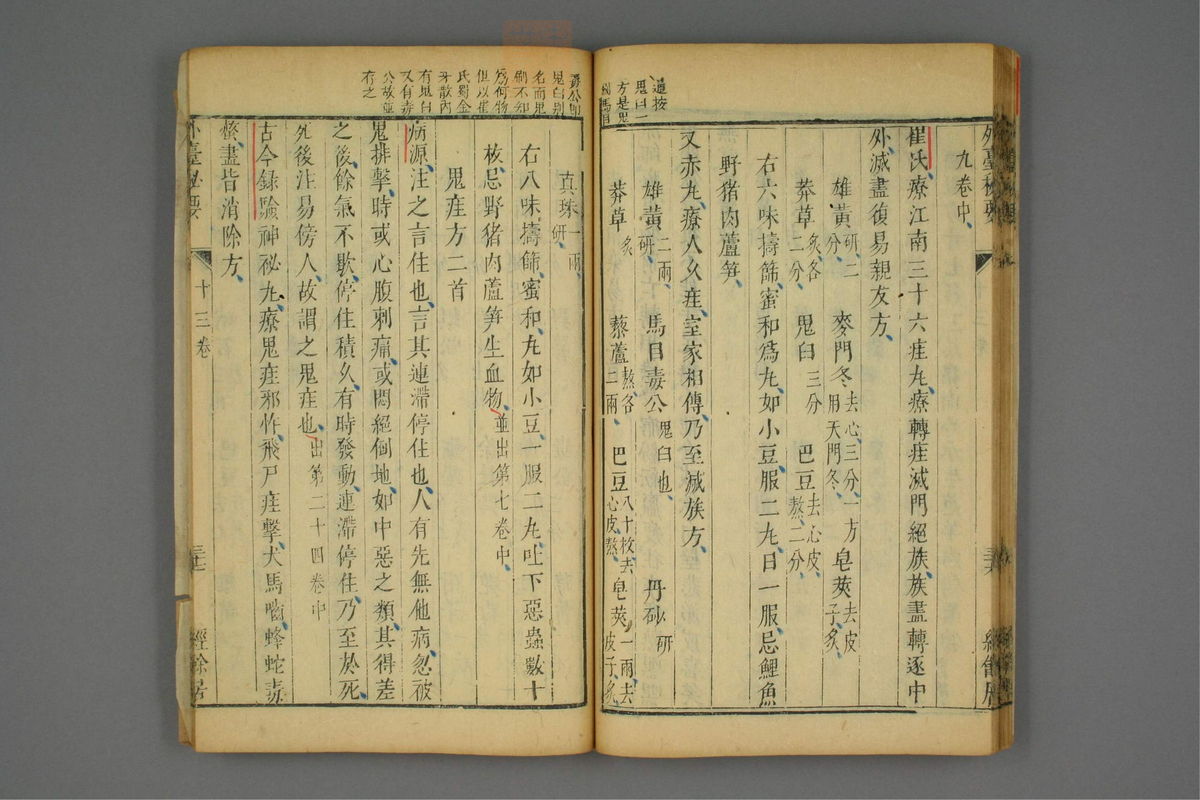 外臺秘要
九卷中
崔氏療江南三十六疰丸療轉疰滅門絕族族盡轉逐中
外滅盡復易親友方
雄黃研二分 麥門冬去心三分一方用天門冬 皂莢去皮子炙
莽草炙各二分 鬼臼三分 巴豆去心皮熬二分
右六味擣篩蜜和為丸如小豆服二丸日一服忌鯉魚
野猪肉蘆笋
又赤丸療人久疰室家相傳乃至滅族方
雄黃二兩研 馬目毒公鬼臼也 丹砂研
莽草炙 藜蘆熬各二兩 巴豆八十枚去心皮熬 皂莢一兩去皮子炙
道按
鬼臼一
方是鬼
臼馬目
毒公即
鬼臼别
名而鬼
不知
為何物
但以崔
氏蜀金
牙散內
有鬼臼
又有毒
公故並
存之
真珠一兩研
右八味擣篩蜜和丸如小豆一服二丸吐下惡蟲數十
枚忌野猪肉蘆笋生血物並出第七卷中
鬼疰方二首
病源注之言住也言其連滯停住也人有先無他病忽被
鬼排擊時或心腹刺痛或悶絕倒地如中惡之類其得差
之後餘氣不歇停住積久有時發動連滯停住乃至於死
死後注易傍人故謂之鬼疰也出第二十四卷中
古今錄驗神秘丸療鬼疰邪忤飛尸疰擊犬馬嚙蜂蛇毒
螫盡皆消除方
外臺秘要 十三卷 經餘居